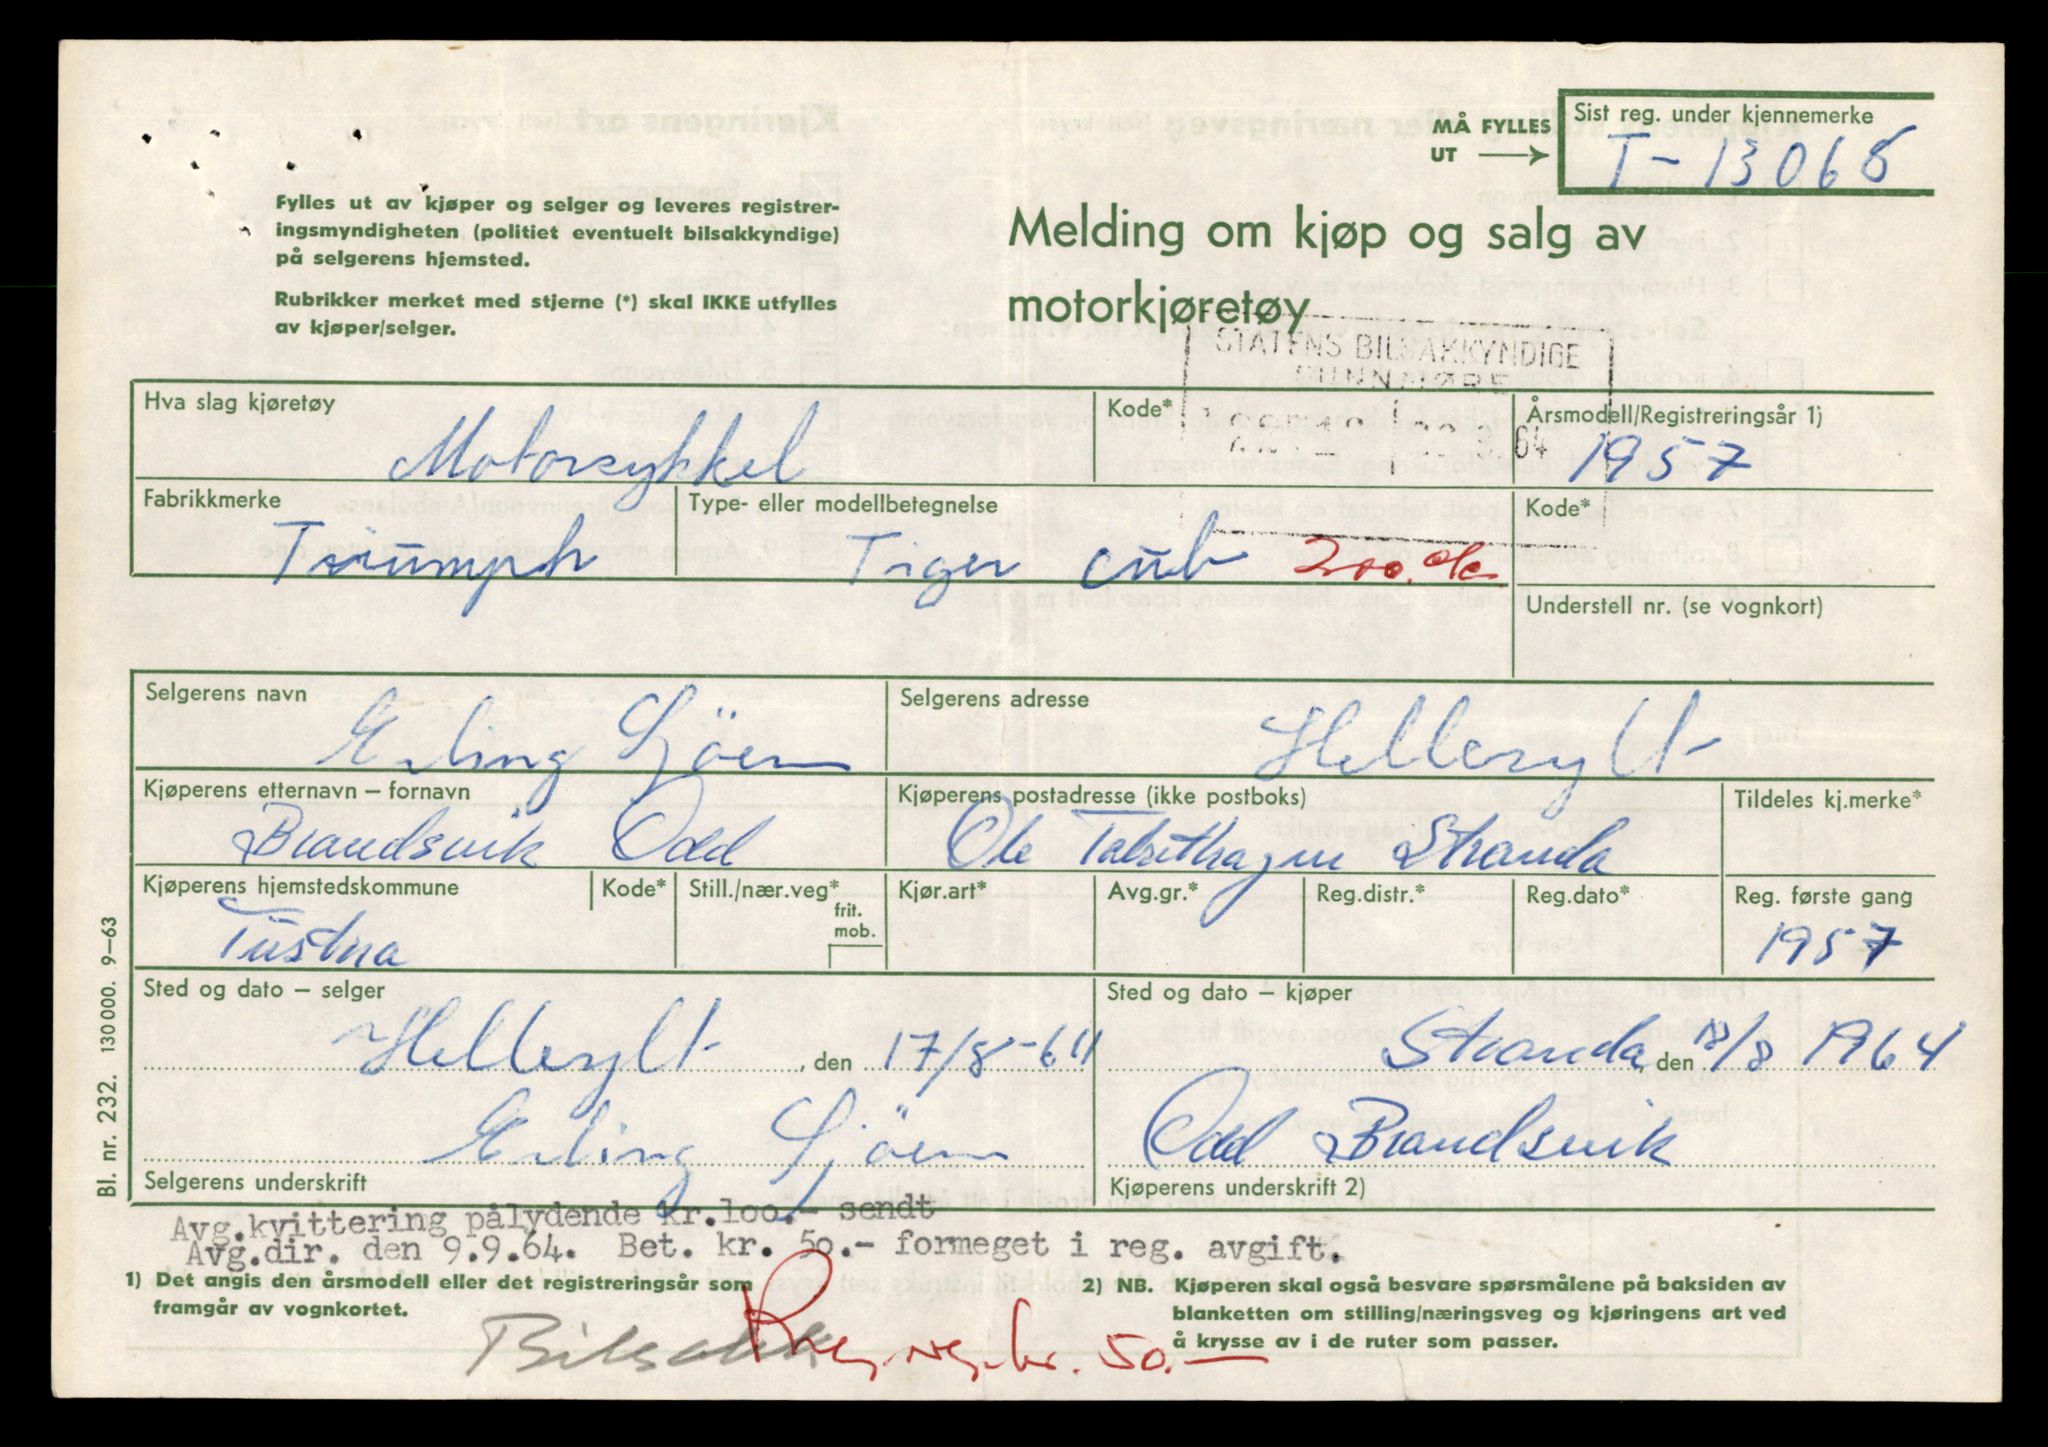 Sist reg. under kjennemerke
MÅ FYLLES UT
T-13068
Fylles ut av kjøper og selger og leveres registrer-
ingsmyndigheten (politiet eventuelt bilsakkyndige)
på selgerens hjemsted.
Rubrikker merket med stjerne (*) skal IKKE utfylles
av kjøper/selger.
Melding om kjøp og salg av
motorkjøretøy
STATENS BILSAKKYNDIGE
SUNNMØRE
64
Hva slag kjøretøy
Motorsykkel
Kode*
Årsmodell/Registreringsår 1)
1957
Fabrikkmerke
Triumph
Type- eller modellbetegnelse
Tiger cub
Kode*
Understell nr. (se vognkort)
Selgerens navn
Erling Sjöen
Selgerens adresse
Hellesylt
Kjøperens etternavn – fornavn
Brandsvik Odd
Kjøperens postadresse (ikke postboks)
Ole Stranda
Tildeles kj.merke*
Kjøperens hjemstedskommune
Tustna
Kode*
Still./nær.veg*
frit.
mob.
Kjør.art*
Avg.gr.*
Reg.distr.*
Reg.dato*
Reg. første gang
1957
Sted og dato – selger
Hellesylt, den 17/8-64
Erling Sjöen
Selgerens underskrift
Sted og dato – kjøper
Stranda, den 18/8 1964
Odd Brandsvik
Kjøperens underskrift 2)
Avg.kvittering pålydende kr.loo.- sendt
Avg.dir. den 9.9.64. Bet. kr. 5o.- formeget i reg. avgift.
1) Det angis den årsmodell eller det registreringsår som
framgår av vognkortet.
2) NB. Kjøperen skal også besvare spørsmålene på baksiden av
blanketten om stilling/næringsveg og kjøringens art ved
å krysse av i de ruter som passer.
kr. 50.-
Bl. nr. 232. 130 000. 9–63